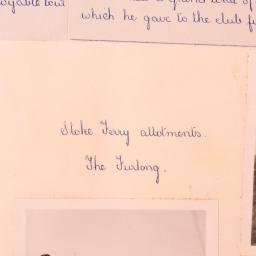 oyable tour
which he gave to the club f
Stoke Ferry allotments.
The Furlong.